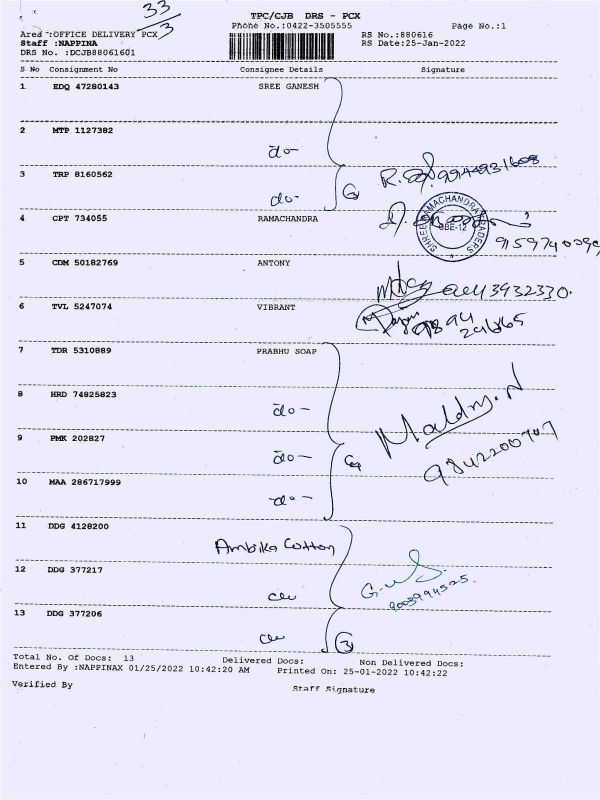 33
/3
TPC/CJB DRS - PCX
Phone No.:0422-3505555
Page No.:1
Ared :OFFICE DELIVERY PCX
Staff :NAPPINA
DRS No. :DCJB88061601
RS No.:880616
RS Date:25-Jan-2022
S No Consignment No Consignee Details Signature
1 EDQ 47280143 SREE GANESH
2 MTP 1127382
do-
3 TRP 8160562
do-
4 CPT 734055 RAMACHANDRA
SHREE RAMACHANDRA TRADERS
CBE-12
5 CDM 50182769 ANTONY
6 TVL 5247074 VIBRANT
7 TDR 5310889 PRABHU SOAP
8 HRD 74825823
do-
9 PMK 202827
do-
10 MAA 286717999
do-
9842200707
11 DDG 4128200
Ambika Cotton
12 DDG 377217
13 DDG 377206
3
Total No. Of Docs: 13 Delivered Docs: Non Delivered Docs:
Entered By :NAPPINAX 01/25/2022 10:42:20 AM Printed On: 25-01-2022 10:42:22
Verified By Staff Signature